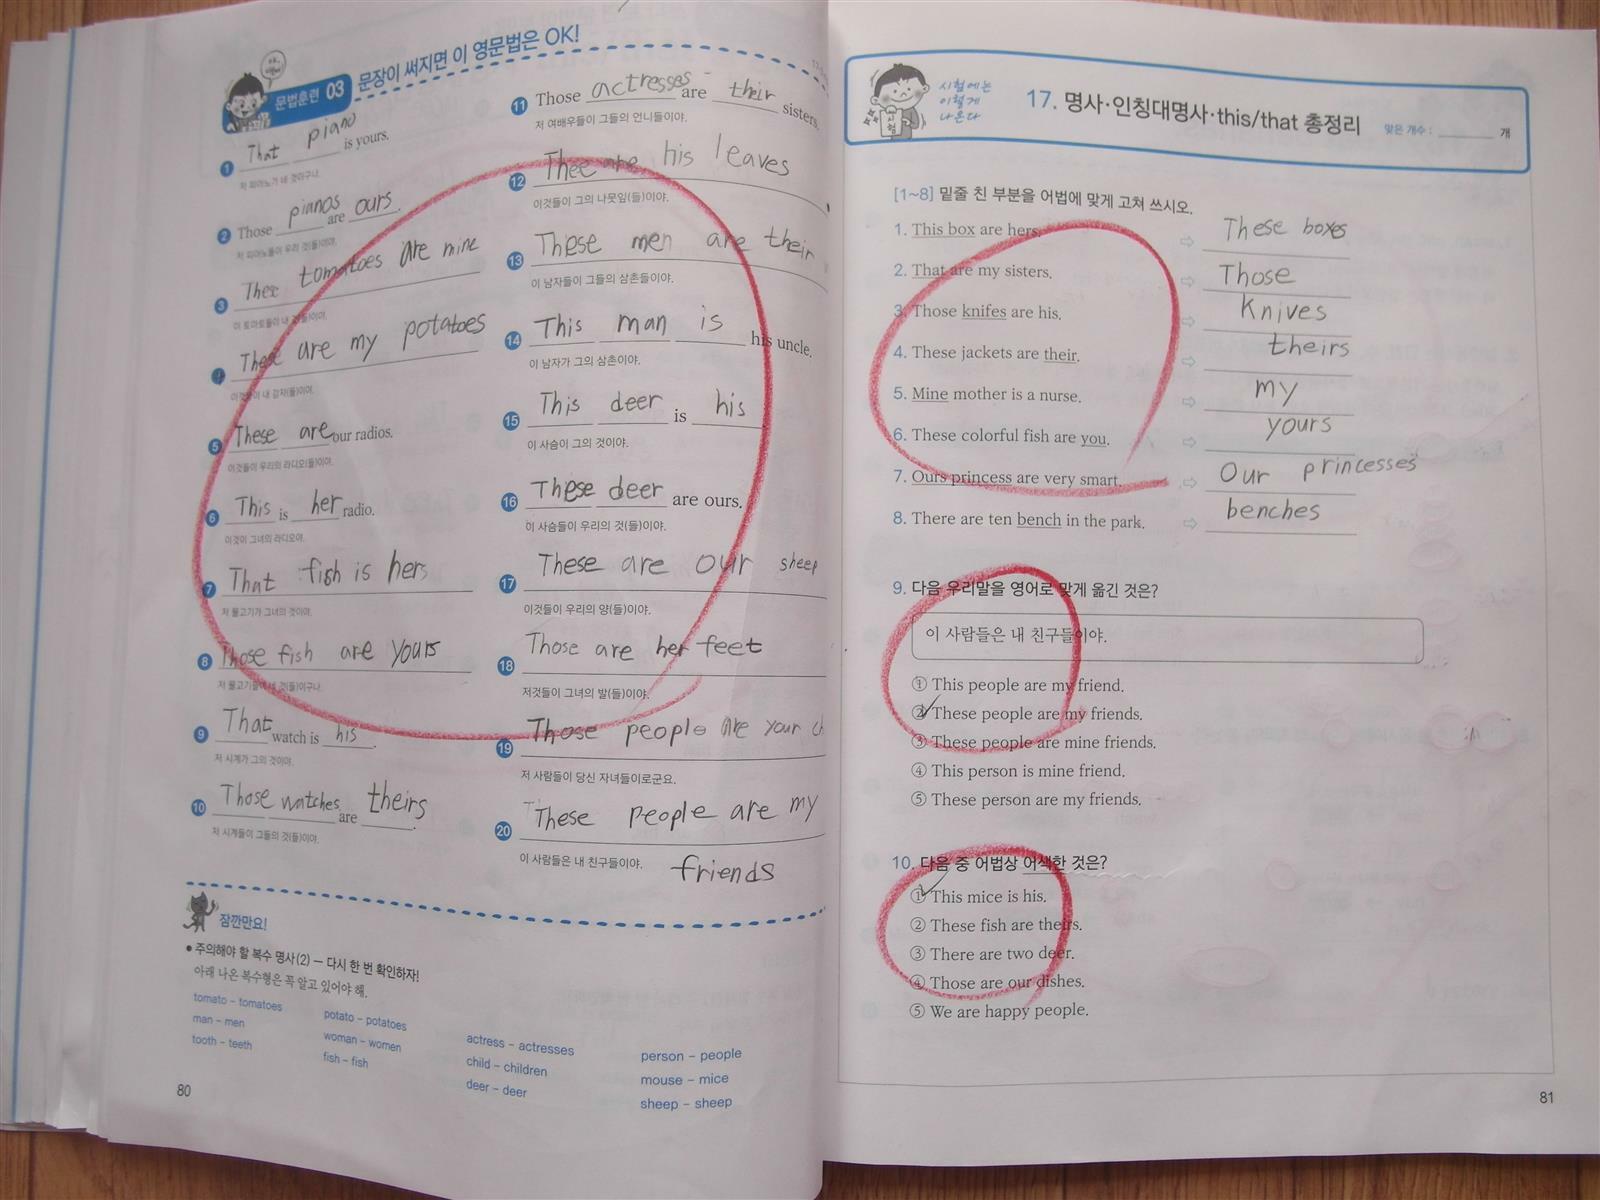 문법훈련 03 문장이 써지면 이 영문법은 OK!
1 That piano is yours.
저 피아노가 네 것이구나.
2 Those pianos are ours.
저 피아노들이 우리 것(들)이야.
3 Thes tomatoes are mine
이 토마토들이 내 것(들)이야.
4 These are my potatoes
이것들이 내 감자(들)이야.
5 These are our radios.
이것들이 우리의 라디오(들)이야.
6 This is her radio.
이것이 그녀의 라디오야.
7 That fish is hers
저 물고기가 그녀의 것이야.
8 Those fish are yours
저 물고기들이 네 것(들)이구나.
9 That watch is his.
저 시계가 그의 것이야.
10 Those watches are theirs.
저 시계들이 그들의 것(들)이야.
11 Those actresses are their sisters.
저 여배우들이 그들의 언니들이야.
12 Thee are his leaves
이것들이 그의 나뭇잎(들)이야.
13 These men are their
이 남자들이 그들의 삼촌들이야.
14 This man is his uncle.
이 남자가 그의 삼촌이야.
15 This deer is his
이 사슴이 그의 것이야.
16 These deer are ours.
이 사슴들이 우리의 것(들)이야.
17 These are our sheep
이것들이 우리의 양(들)이야.
18 Those are her feet
저것들이 그녀의 발(들)이야.
19 Those people are your ch
저 사람들이 당신 자녀들이로군요.
20 These people are my
이 사람들은 내 친구들이야.
friends
잠깐만요!
• 주의해야 할 복수 명사(2) – 다시 한 번 확인하자!
아래 나온 복수형은 꼭 알고 있어야 해.
tomato – tomatoes
potato – potatoes
actress – actresses
person – people
man – men
woman – women
child – children
mouse – mice
tooth – teeth
fish – fish
deer – deer
sheep – sheep
80
시험에는
이렇게
나온다
시험
17. 명사·인칭대명사·this/that 총정리
맞은 개수 : 개
[1~8] 밑줄 친 부분을 어법에 맞게 고쳐 쓰시오.
1. This box are hers. ⇨ These boxes
2. That are my sisters. ⇨ Those
3. Those knifes are his. ⇨ Knives
4. These jackets are their. ⇨ theirs
5. Mine mother is a nurse. ⇨ my
6. These colorful fish are you. ⇨ yours
7. Ours princess are very smart. ⇨ Our princesses
8. There are ten bench in the park. ⇨ benches
9. 다음 우리말을 영어로 맞게 옮긴 것은?
이 사람들은 내 친구들이야.
① This people are my friend.
② These people are my friends.
③ These people are mine friends.
④ This person is mine friend.
⑤ These person are my friends.
10. 다음 중 어법상 어색한 것은?
① This mice is his.
② These fish are theirs.
③ There are two deer.
④ Those are our dishes.
⑤ We are happy people.
81